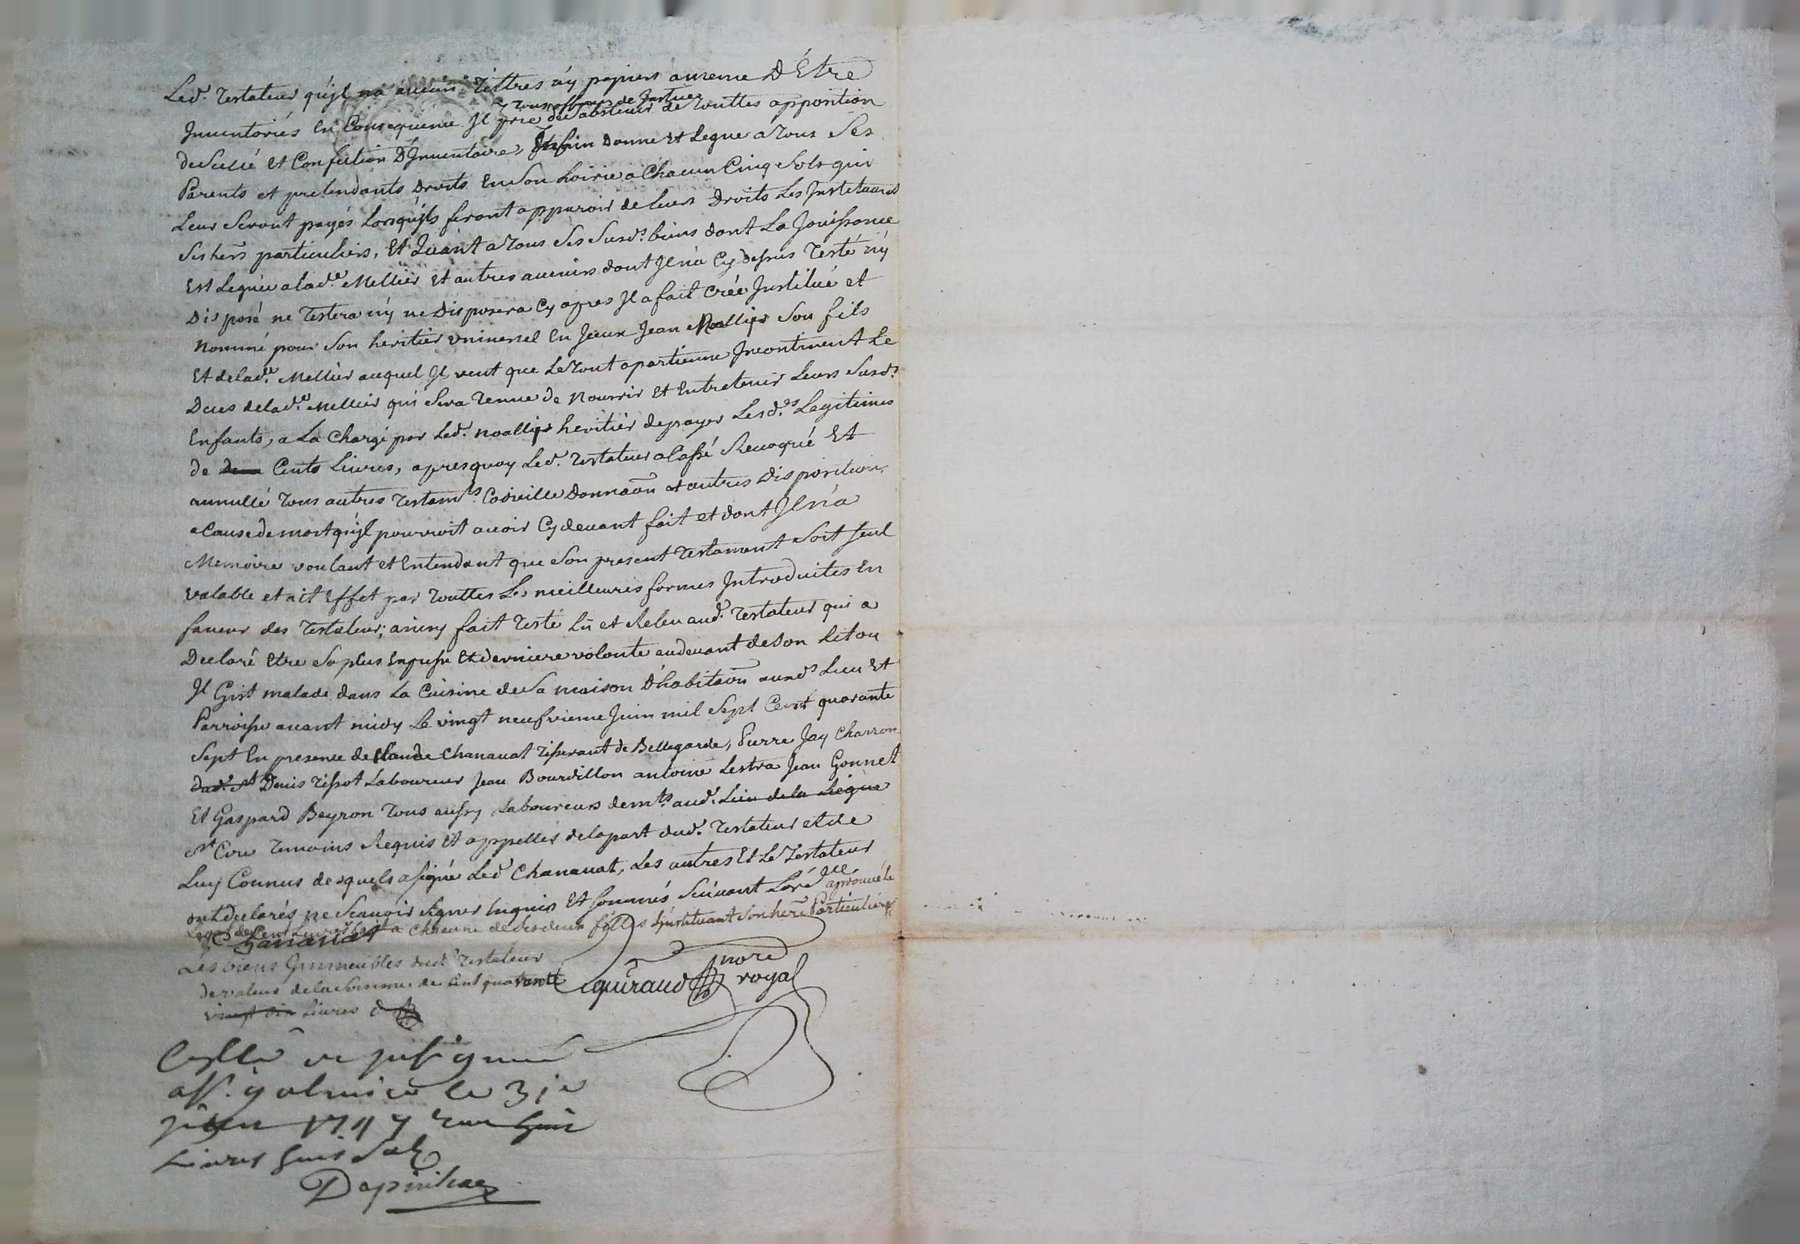 Led.t testateur qu'il na aucuns tittres n'y papiers au meme D'Etre
Inventoriés En Consequence Il prie tous officiers de Justice de sabstenir de touttes apposition
de Scellé et Confection D'Inventaire, Enfin donne et Legue a tous Ses
Parents et pretendants Droits En Son hoirie a Chacun Cinq Sols qui
Leur Seront payés Lorsqu'ils feront apparoir de leurs Droits Les Instituant
Ses hers particuliers, Et Quant a tous Ses Susd.s biens dont La Jouissance
Est Leguée a lad.e Mellier Et autres avenirs dont Il n'a Cy dessus Testé n'y
Disposé ne Testera n'y ne Disposera Cy apres Il a fait Créé Institué et
Nommé pour Son heritier universel En Jceux Jean Noallier Son fils
Et de lad.e Mellier auquel Il veut que Le tout apartienne Incontinent Le
Deces de lad.e Mellier qui Sera Tenue de Nourrir Et Entretenir Leurs Susd.s
Enfants, a La Charge par Led.t Noallier heritier de payer Lesd.es Legitimes
de deux Cents Livres, apres quoy Led.t Testateur a Cassé Revoqué Et
annullé tous autres Testam.ts Codicille Donnaōn et autres Dispositions
a Cause de mort qu'il pourroit avoir Cy devant fait et dont Il n'a
Memoire voulant et Entendant que Son present Testament Soit Seul
valable et ait Effet par touttes Les meilleures formes Introduites En
faveur des Testateur; ainsy fait Testé Lû et Releu aud.t Testateur qui a
Declaré Etre Sa plus Expresse Et derniere volonté au devant de Son Lit ou
Il Gist malade dans La Cuisine de Sa maison D'habitaōn auxd.s Lieu Et
Parroisse avant midy Le vingt neufvieme Juin mil Sept Cent quarante
Sept En presence de Claude Chanavat Tisserant de Bellegarde, Pierre Jay Charron
Dud. St Denis Tissot Laboureur Jean Bourdillon antoine Lestra Jean Gonnet
Et Gaspard Beyron tous aussy Laboureurs dem.ts aud.t Lieu de la Liegue
St Cire Temoins Requis Et appellés de la part dud.t Testateur et de
Luy Connus desquels a signé Led.t Chanavat, Les autres Et Le Testateur
ont declarés ne Scavoir Signer Enquis Et Sommés Suivant Lord.ce approuvé le
Legs de Cent Livres a Chacune de Ses deux filles Instituant Son her Particulières
Chanavat
Les biens Immeubles dud.t Testateur
de valeur de la Somme de Cent quarante
vingt dix Livres
guiraud nore royal
Collé et Insignué
le 31e
juin 1747
Livres Sols
Dapinhac